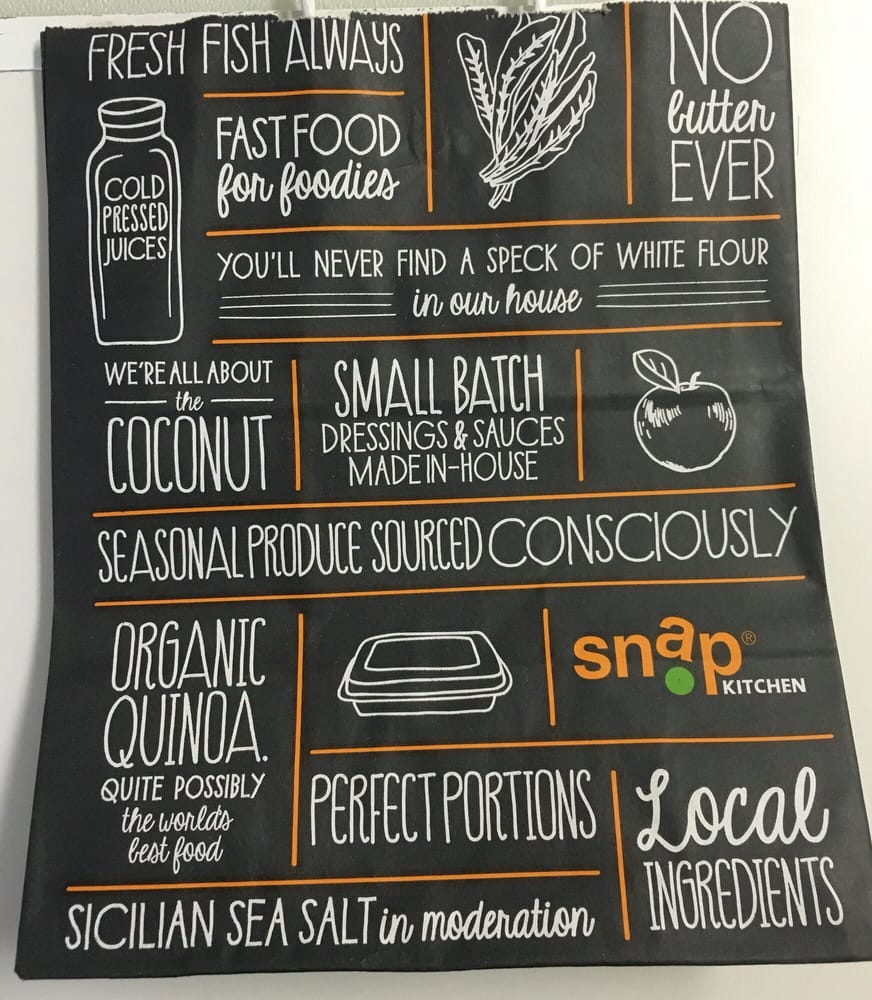 FRESH FISH ALWAYS
COLD
PRESSED
JUICES
FAST FOOD
for foodies
NO
butter
EVER
YOU'LL NEVER FIND A SPECK OF WHITE FLOUR
in our house
WE'RE ALL ABOUT
the
COCONUT
SMALL BATCH
DRESSINGS & SAUCES
MADE IN-HOUSE
SEASONAL PRODUCE SOURCED CONSCIOUSLY
ORGANIC
QUINOA.
QUITE POSSIBLY
the world's
best food
snap®
KITCHEN
PERFECT PORTIONS
Local
INGREDIENTS
SICILIAN SEA SALT in moderation